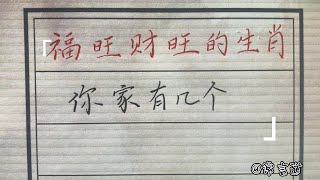 「福旺财旺的生肖
你家有几个」